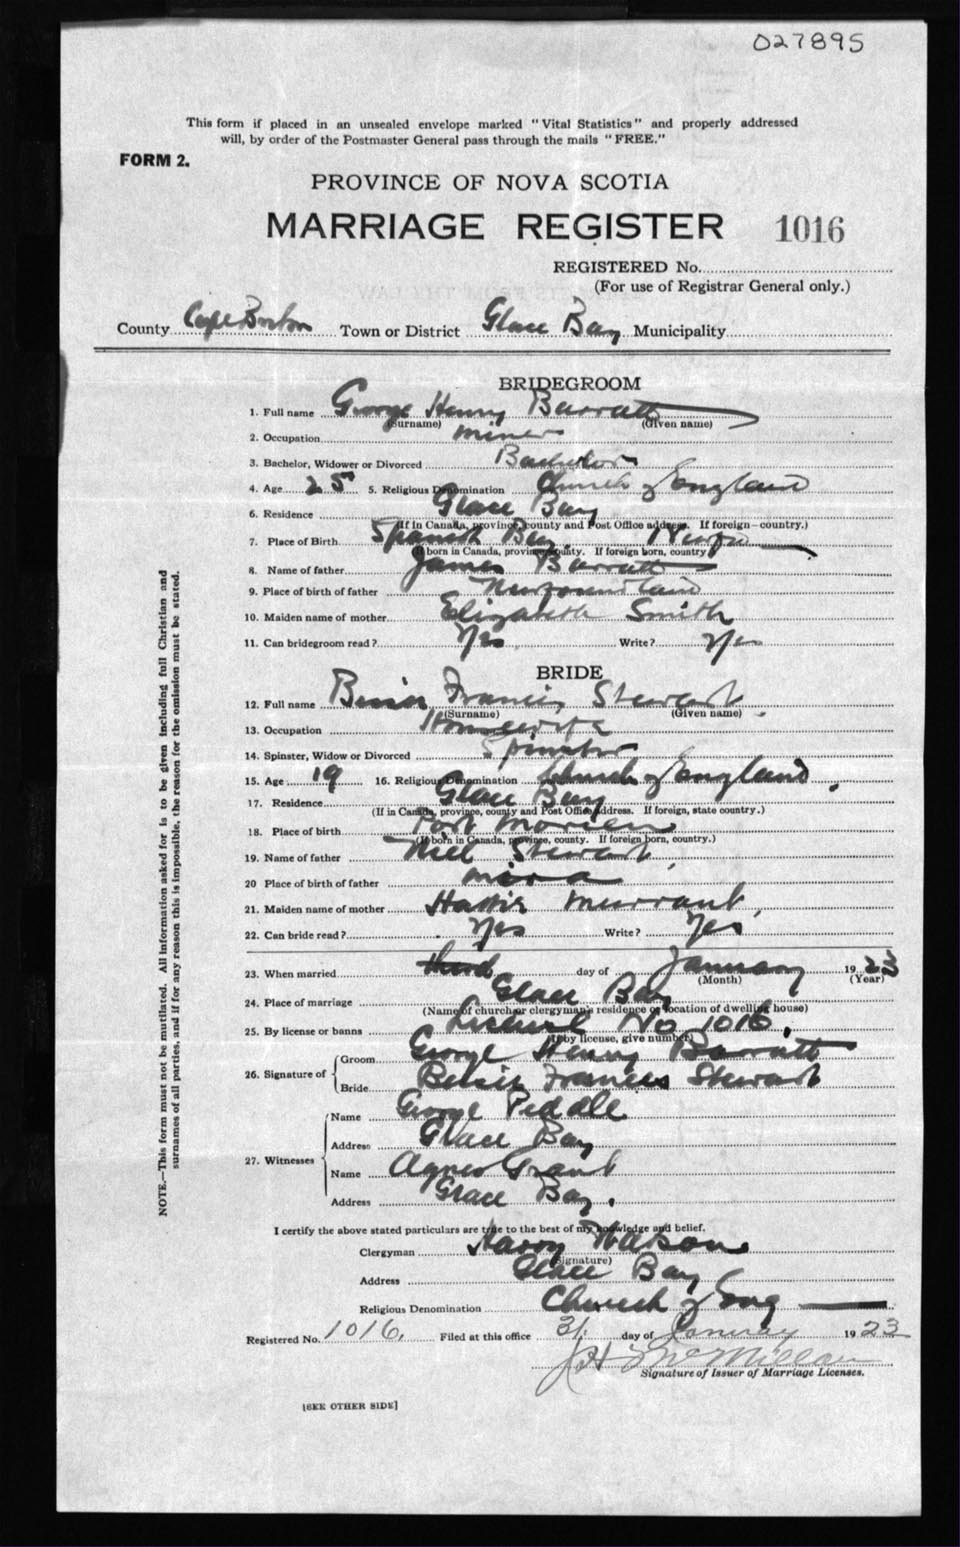 027895
This form if placed in an unsealed envelope marked "Vital Statistics" and properly addressed
will, by order of the Postmaster General pass through the mails "FREE."
FORM 2.
PROVINCE OF NOVA SCOTIA
MARRIAGE REGISTER 1016
REGISTERED No.
(For use of Registrar General only.)
County Cape Breton Town or District Glace Bay Municipality
BRIDEGROOM
1. Full name George Henry Barratt
(Surname) (Given name)
2. Occupation miner
3. Bachelor, Widower or Divorced Bachelor
4. Age 25 5. Religious Denomination Church of England
6. Residence Glace Bay
(If in Canada, province, county and Post Office address. If foreign—country.)
7. Place of Birth Spanish Bay
(If born in Canada, province, county. If foreign born, country)
8. Name of father James Barratt
9. Place of birth of father Newfoundland
10. Maiden name of mother Elizabeth Smith
11. Can bridegroom read? Yes Write? Yes
BRIDE
12. Full name Bessie Francis Stewart
(Surname) (Given name)
13. Occupation Housewife
14. Spinster, Widow or Divorced Spinster
15. Age 19 16. Religious Denomination Church of England
17. Residence Glace Bay
(If in Canada, province, county and Post Office address. If foreign, state country.)
18. Place of birth Port Morien
(If born in Canada, province, county. If foreign born, country.)
19. Name of father Neil Stewart
20 Place of birth of father mira
21. Maiden name of mother Hattie Murrant
22. Can bride read? Yes Write? Yes
23. When married third day of January 1923
(Month) (Year)
24. Place of marriage Glace Bay
(Name of church or clergyman's residence or location of dwelling house)
25. By license or banns License No 1016.
(If by license, give number)
26. Signature of Groom George Henry Barratt
Bride Bessie Frances Stewart
27. Witnesses Name George Peddle
Address Glace Bay
Name Agnes Grant
Address Glace Bay.
I certify the above stated particulars are true to the best of my knowledge and belief.
Clergyman Harry Watson
(Signature)
Address Glace Bay
Religious Denomination Church of Eng
Registered No. 1016. Filed at this office 31. day of January 1923
J H McMillan
Signature of Issuer of Marriage Licenses.
[SEE OTHER SIDE]
NOTE.—This form must not be mutilated. All information asked for is to be given including full Christian and
surnames of all parties, and if for any reason this is impossible, the reason for the omission must be stated.